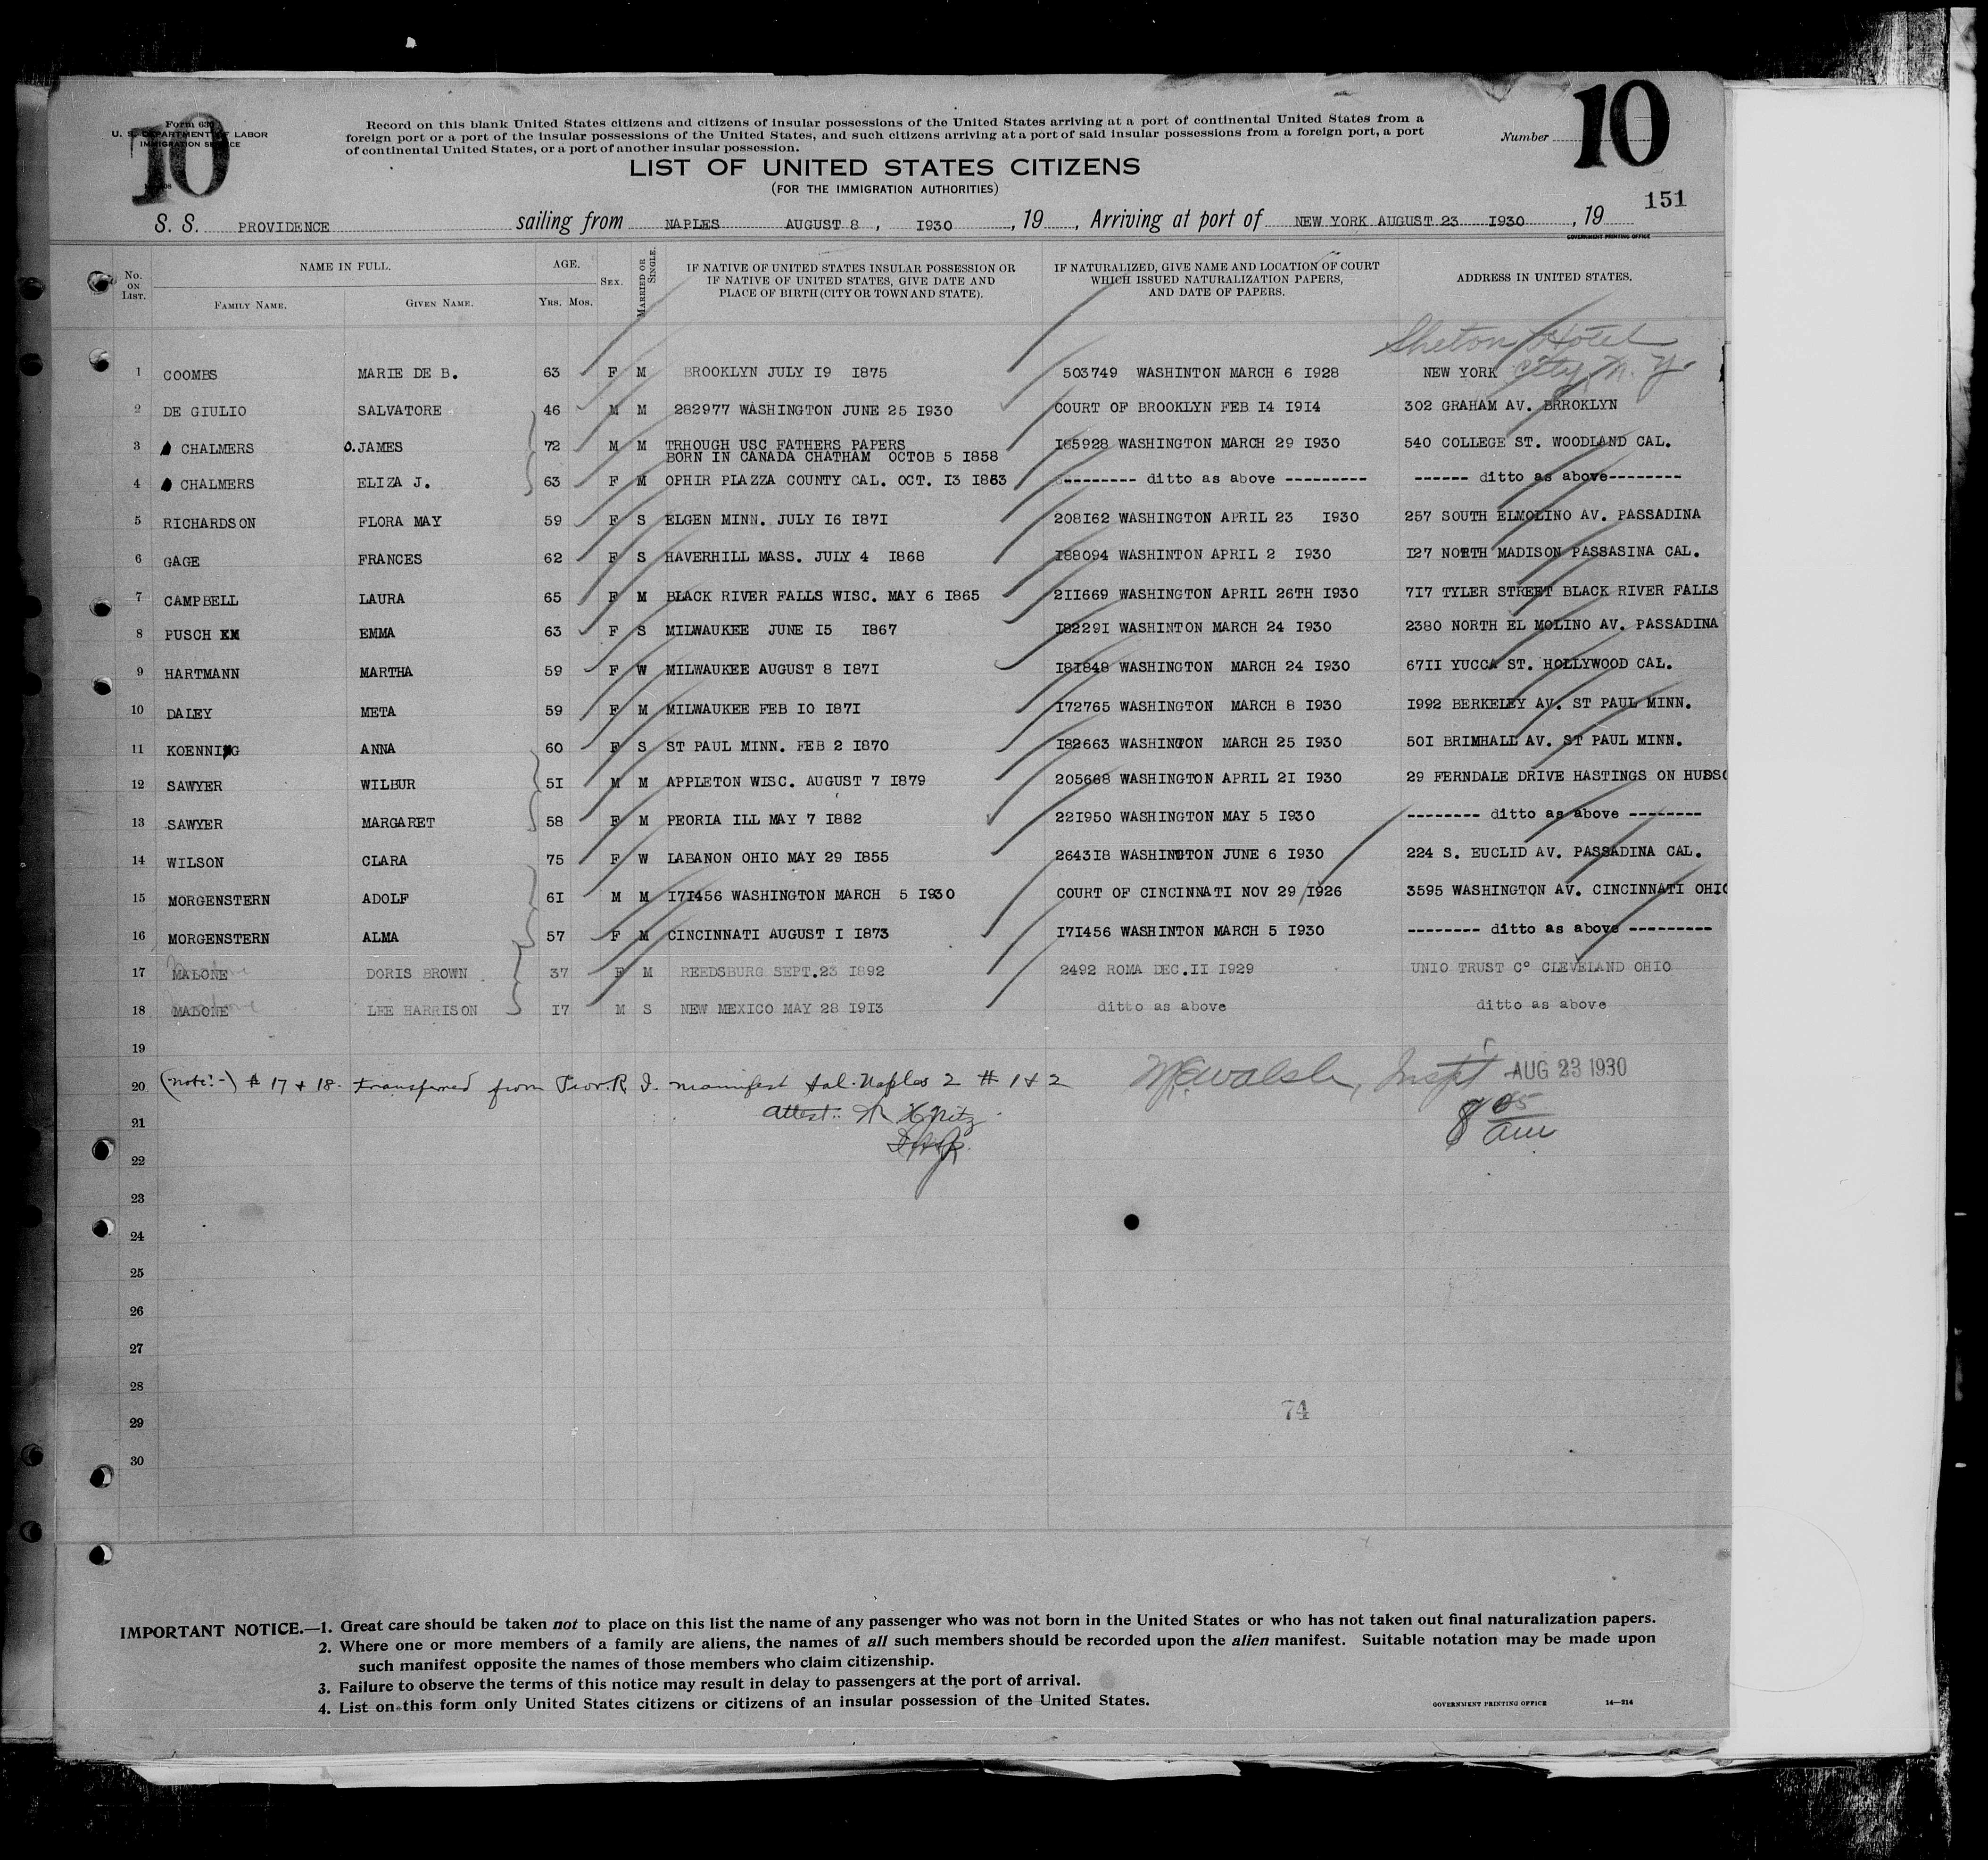 10
Form 630
U. S. DEPARTMENT OF LABOR
IMMIGRATION SERVICE
Record on this blank United States citizens and citizens of insular possessions of the United States arriving at a port of continental United States from a
foreign port or a port of the insular possessions of the United States, and such citizens arriving at a port of said insular possessions from a foreign port, a port
of continental United States, or a port of another insular possession.
Number 10
LIST OF UNITED STATES CITIZENS
(FOR THE IMMIGRATION AUTHORITIES)
151
S. S. PROVIDENCE sailing from NAPLES AUGUST 8 , 1930 , 19 , Arriving at port of NEW YORK AUGUST 23 1930 , 19
GOVERNMENT PRINTING OFFICE
No. ON LIST. NAME IN FULL. FAMILY NAME. GIVEN NAME. AGE. YRS. MOS. SEX. MARRIED OR SINGLE. IF NATIVE OF UNITED STATES INSULAR POSSESSION OR IF NATIVE OF UNITED STATES, GIVE DATE AND PLACE OF BIRTH (CITY OR TOWN AND STATE). IF NATURALIZED, GIVE NAME AND LOCATION OF COURT WHICH ISSUED NATURALIZATION PAPERS, AND DATE OF PAPERS. ADDRESS IN UNITED STATES.
Shelton Hotel
1 COOMBS MARIE DE B. 63 F M BROOKLYN JULY 19 1875 503749 WASHINTON MARCH 6 1928 NEW YORK City N. Y.
2 DE GIULIO SALVATORE 46 M M 282977 WASHINGTON JUNE 25 1930 COURT OF BROOKLYN FEB 14 1914 302 GRAHAM AV. BRROKLYN
3 CHALMERS O. JAMES 72 M M TRHOUGH USC FATHERS PAPERS 185928 WASHINGTON MARCH 29 1930 540 COLLEGE ST. WOODLAND CAL.
BORN IN CANADA CHATHAM OCTOB 5 1858
4 CHALMERS ELIZA J. 63 F M OPHIR PLAZZA COUNTY CAL. OCT. 13 1863 --------- ditto as above --------- ------ ditto as above--------
5 RICHARDSON FLORA MAY 59 F S ELGEN MINN. JULY 16 1871 208162 WASHINGTON APRIL 23 1930 257 SOUTH ELMOLINO AV. PASSADINA
6 GAGE FRANCES 62 F S HAVERHILL MASS. JULY 4 1868 188094 WASHINTON APRIL 2 1930 127 NORTH MADISON PASSASINA CAL.
7 CAMPBELL LAURA 65 F M BLACK RIVER FALLS WISC. MAY 6 1865 211669 WASHINGTON APRIL 26TH 1930 717 TYLER STREET BLACK RIVER FALLS
8 PUSCH EM EMMA 63 F S MILWAUKEE JUNE 15 1867 182291 WASHINTON MARCH 24 1930 2380 NORTH EL MOLINO AV. PASSADINA
9 HARTMANN MARTHA 59 F W MILWAUKEE AUGUST 8 1871 181848 WASHINGTON MARCH 24 1930 6711 YUCCA ST. HOLLYWOOD CAL.
10 DALEY META 59 F M MILWAUKEE FEB 10 1871 172765 WASHINGTON MARCH 8 1930 1992 BERKELEY AV. ST PAUL MINN.
11 KOENNING ANNA 60 F S ST PAUL MINN. FEB 2 1870 182663 WASHINGTON MARCH 25 1930 501 BRIMHALL AV. ST PAUL MINN.
12 SAWYER WILBUR 51 M M APPLETON WISC. AUGUST 7 1879 205668 WASHINGTON APRIL 21 1930 29 FERNDALE DRIVE HASTINGS ON HUDSO
13 SAWYER MARGARET 58 F M PEORIA ILL MAY 7 1882 221950 WASHINGTON MAY 5 1930 -------- ditto as above --------
14 WILSON CLARA 75 F W LABANON OHIO MAY 29 1855 264318 WASHINGTON JUNE 6 1930 224 S. EUCLID AV. PASSADINA CAL.
15 MORGENSTERN ADOLF 61 M M 171456 WASHINGTON MARCH 5 1930 COURT OF CINCINNATI NOV 29 1926 3595 WASHINGTON AV. CINCINNATI OHIO
16 MORGENSTERN ALMA 57 F M CINCINNATI AUGUST 1 1873 171456 WASHINTON MARCH 5 1930 -------- ditto as above ---------
17 MALONE DORIS BROWN 37 F M REEDSBURG SEPT.23 1892 2492 ROMA DEC.11 1929 UNIO TRUST Cº CLEVELAND OHIO
18 MALONE LEE HARRISON 17 M S NEW MEXICO MAY 28 1913 ditto as above ditto as above
19
20 (note:-) # 17 & 18. transferred from Prov. R I. manifest Naples 2 # 1 & 2 Walsh, Inspt AUG 23 1930
21 attest: 8 05 am
22
23
24
25
26
27
28
74
29
30
IMPORTANT NOTICE.—1. Great care should be taken not to place on this list the name of any passenger who was not born in the United States or who has not taken out final naturalization papers.
2. Where one or more members of a family are aliens, the names of all such members should be recorded upon the alien manifest. Suitable notation may be made upon
such manifest opposite the names of those members who claim citizenship.
3. Failure to observe the terms of this notice may result in delay to passengers at the port of arrival.
4. List on this form only United States citizens or citizens of an insular possession of the United States.
GOVERNMENT PRINTING OFFICE 14—214